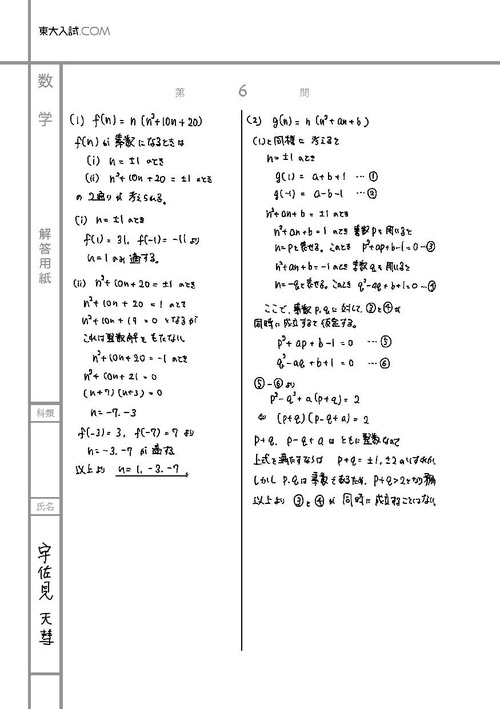 東大入試.COM
数学
第 6 問
解答用紙
科類
氏名
宇佐見 天彗
(1) f(n) = n (n²+10n+20)
f(n) が 素数になるときは
(i) n = ±1 のとき
(ii) n²+10n+20 = ±1 のとき
の 2通りが 考えられる。
(i) n = ±1 のとき
f(1) = 31, f(-1) = -11 より
n = 1 のみ 適する。
(ii) n²+10n+20 = ±1 のとき
n²+10n+20 = 1 のとき
n²+10n+19 = 0 となるが
これは整数解をもたない
n²+10n+20 = -1 のとき
n²+10n+21 = 0
(n+7)(n+3) = 0
n = -7, -3
f(-3) = 3, f(-7) = 7 より
n = -3, -7 が 適する
以上より n = 1, -3, -7
(2) g(n) = n (n²+an+b)
(1)と同様に 考えると
n = ±1 のとき
g(1) = a+b+1 … ①
g(-1) = a-b-1 … ②
n²+an+b = ±1 のとき
n²+an+b = 1 のとき 素数 p を 用いると
n = p と表せる。このとき p²+ap+b-1 = 0 … ③
n²+an+b = -1 のとき 素数 q を 用いると
n = -q と表せる。このとき q²-aq+b+1 = 0 … ④
ここで、素数 p, q に 対して、③ と ④ が
同時に成立すると 仮定する。
p²+ap+b-1 = 0 … ⑤
q²-aq+b+1 = 0 … ⑥
⑤-⑥ より
p²-q²+a(p+q) = 2
⇔ (p+q)(p-q+a) = 2
p+q, p-q+a は ともに 整数なので
上式を 満たすならば p+q = ±1, ±2 のいずれか
しかし p, q は 素数 であるため、p+q > 2 となり 矛盾
以上より ③ と ④ が 同時に 成立することはない。